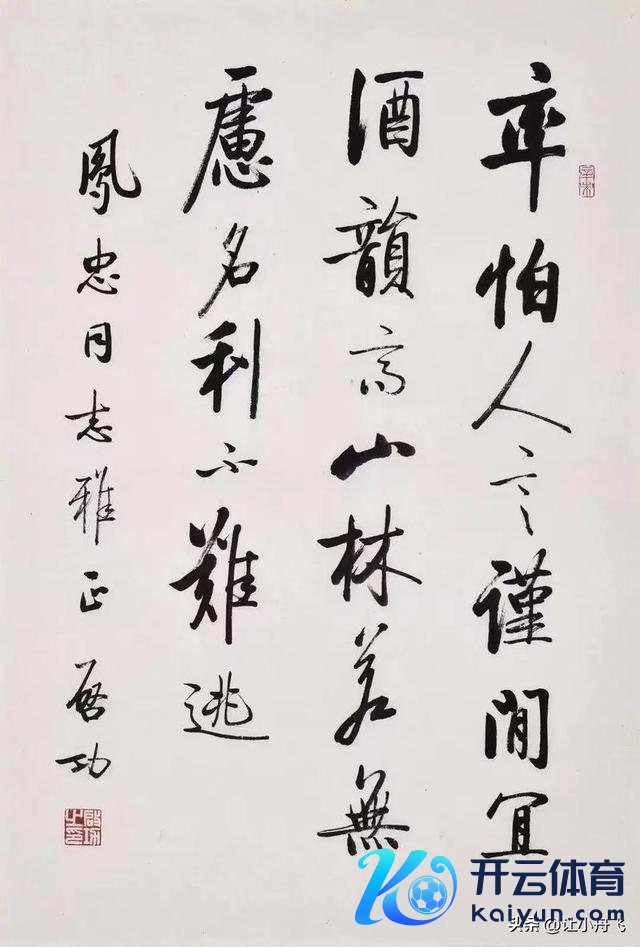 率怕人言謹閒宜
酒韻高山林若無
慮名利不難逃
鳳忠同志雅正 啓功
辛未
啟功之印
开云体育
kaiyun.com
头条